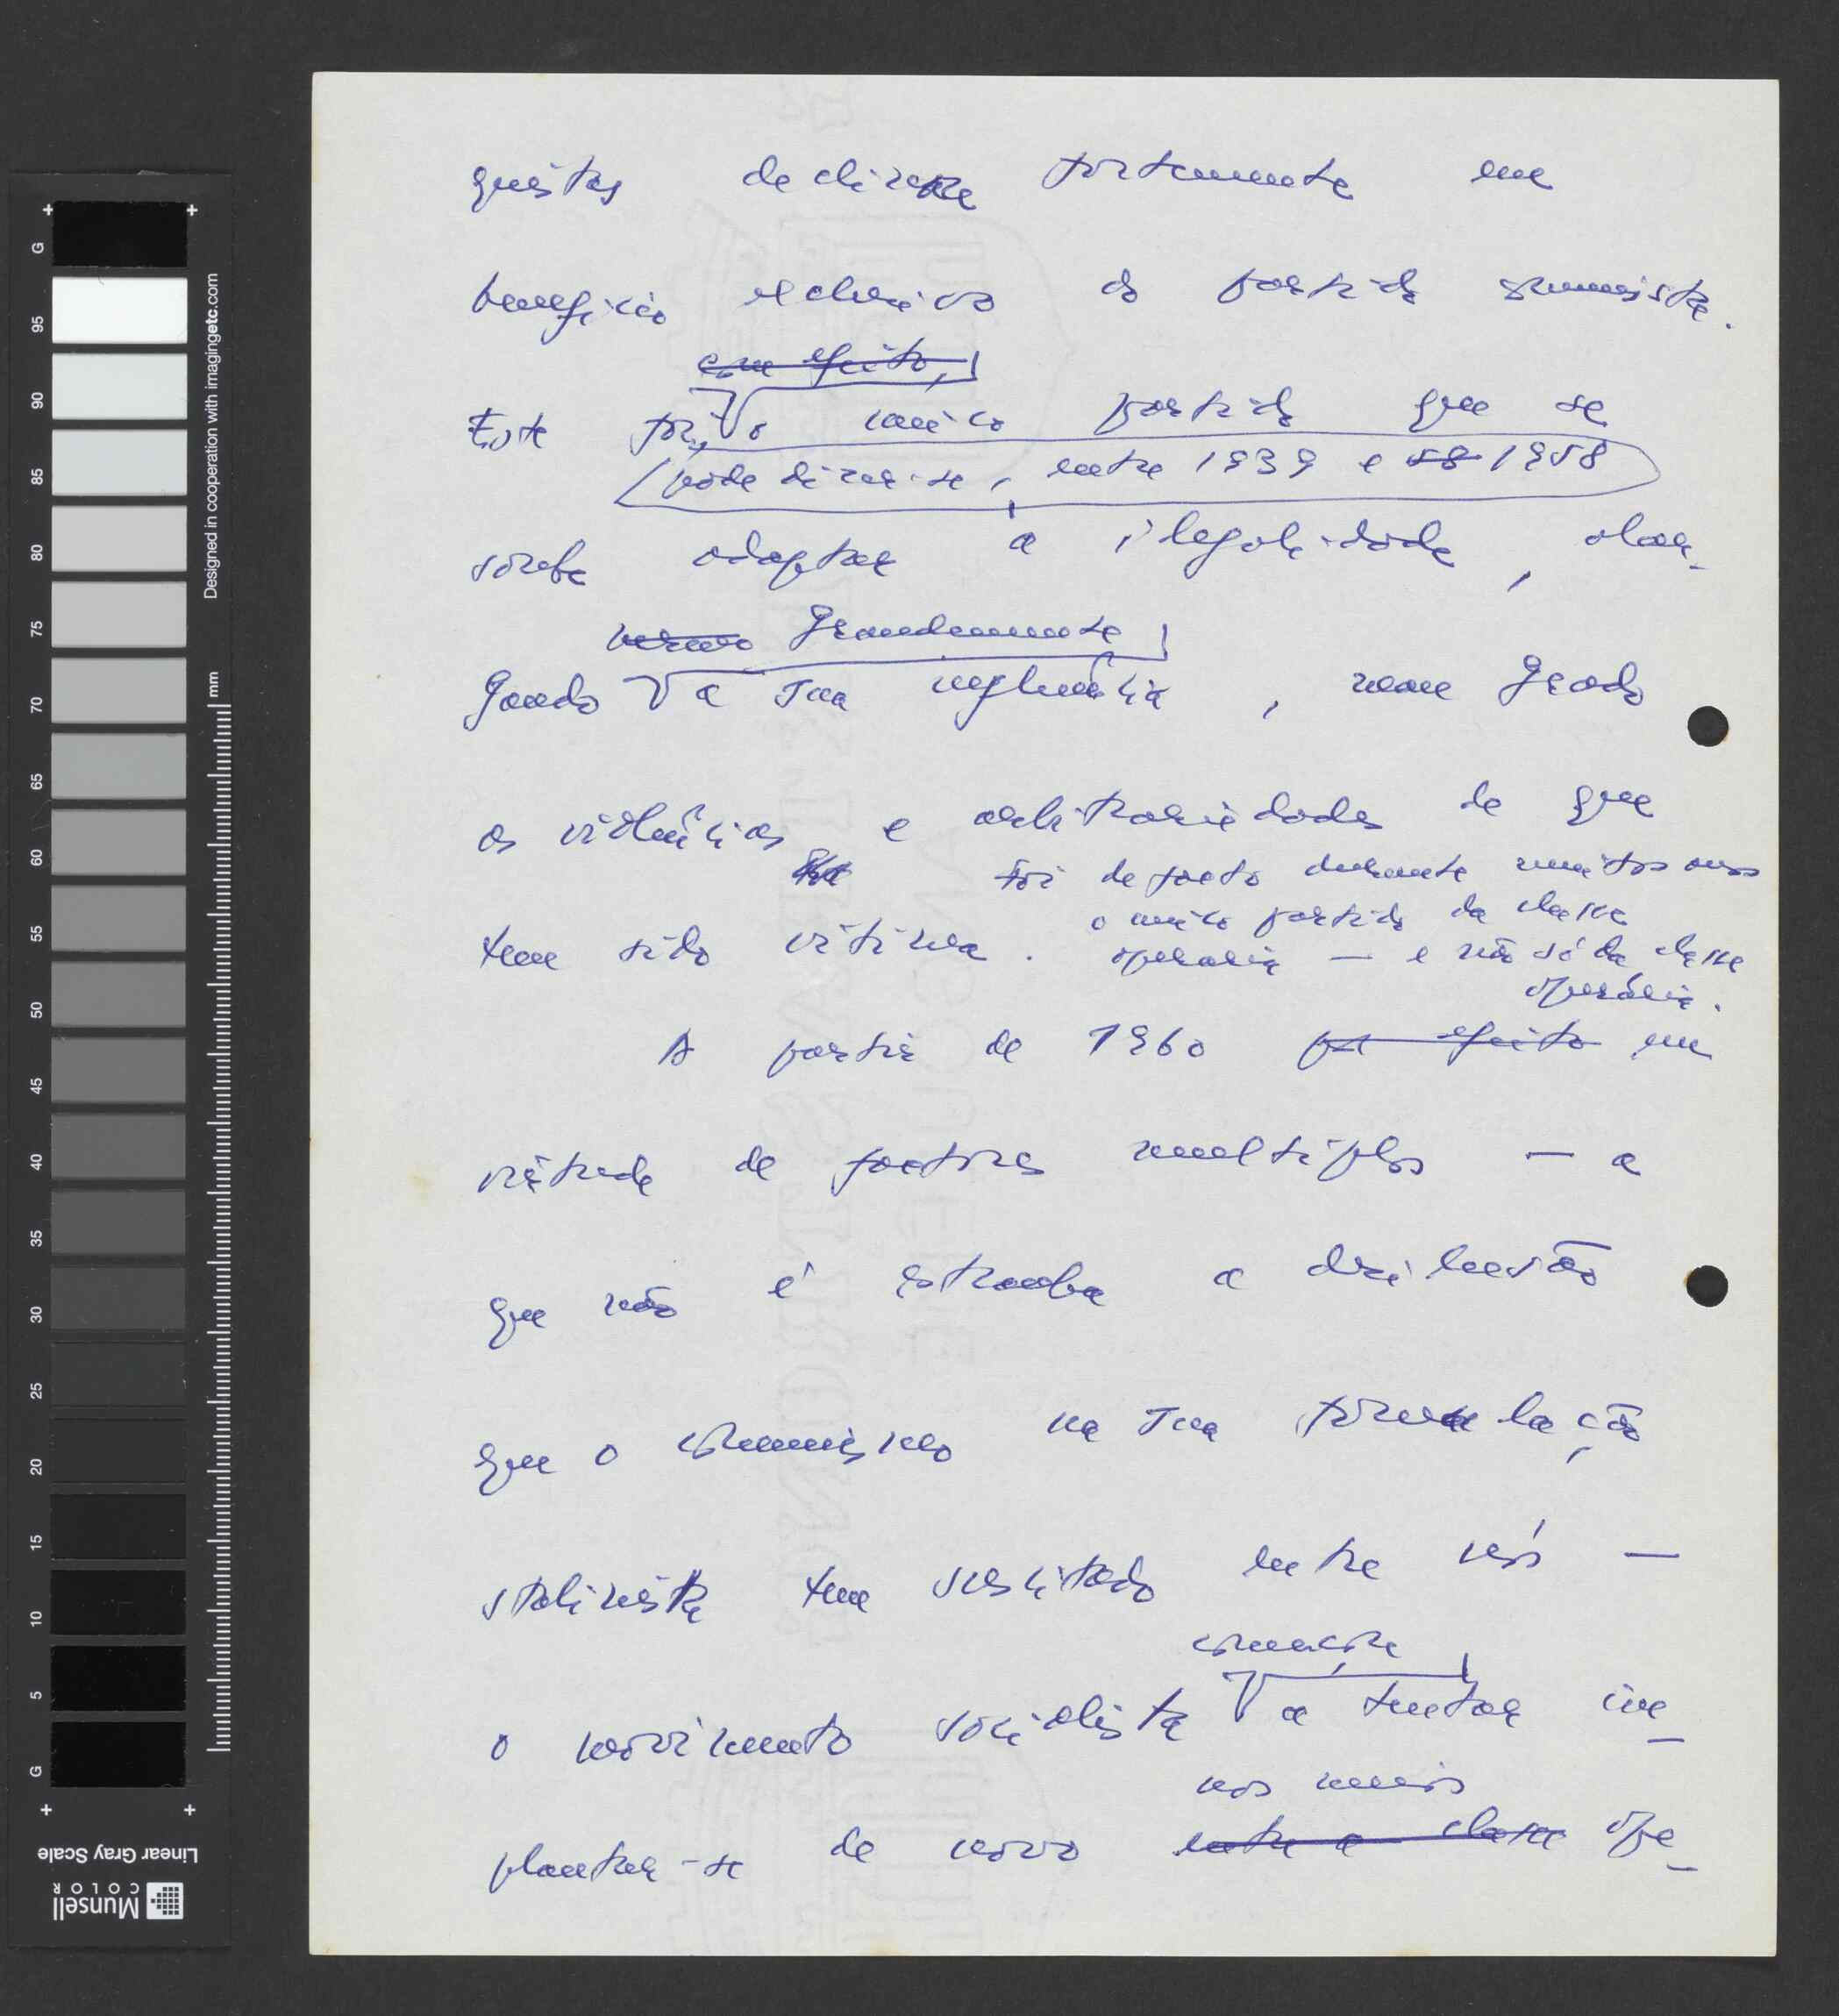 quistas declinar fortemente em
benefício exclusivo do partido comunista.
com efeito,
Este foi, o único partido que se
pode dizer-se, entre 1939 e 58 1958
soube adaptar à ilegalidade, alar-
grandemente
gando a sua influência, mau grado
as violências e arbitrariedades de que
foi de facto durante muitos anos
o único partido da classe
tem sido vítima. operária — e não só da classe
operária.
A partir de 1960 por efeito em
virtude de factores multiplos — a
que não é estranha a desilusão
que o comunismo na sua formulação
stalinista tem suscitado entre nós —
começa
o movimento socialista a tentar im-
nos meios
plantar-se de novo entre a classe ope-
Designed in cooperation with imagingetc.com
mm
Linear Gray Scale
Munsell
COLOR
G
95
90
85
80
75
70
65
60
55
50
45
40
35
30
25
20
15
10
5
G